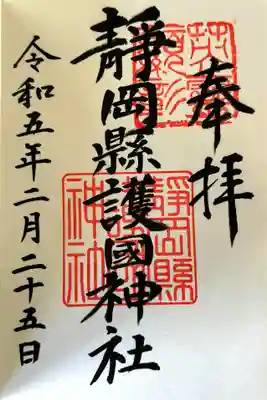 奉拝
靜岡縣護國神社
令和五年二月二十五日
靜岡縣護國神社